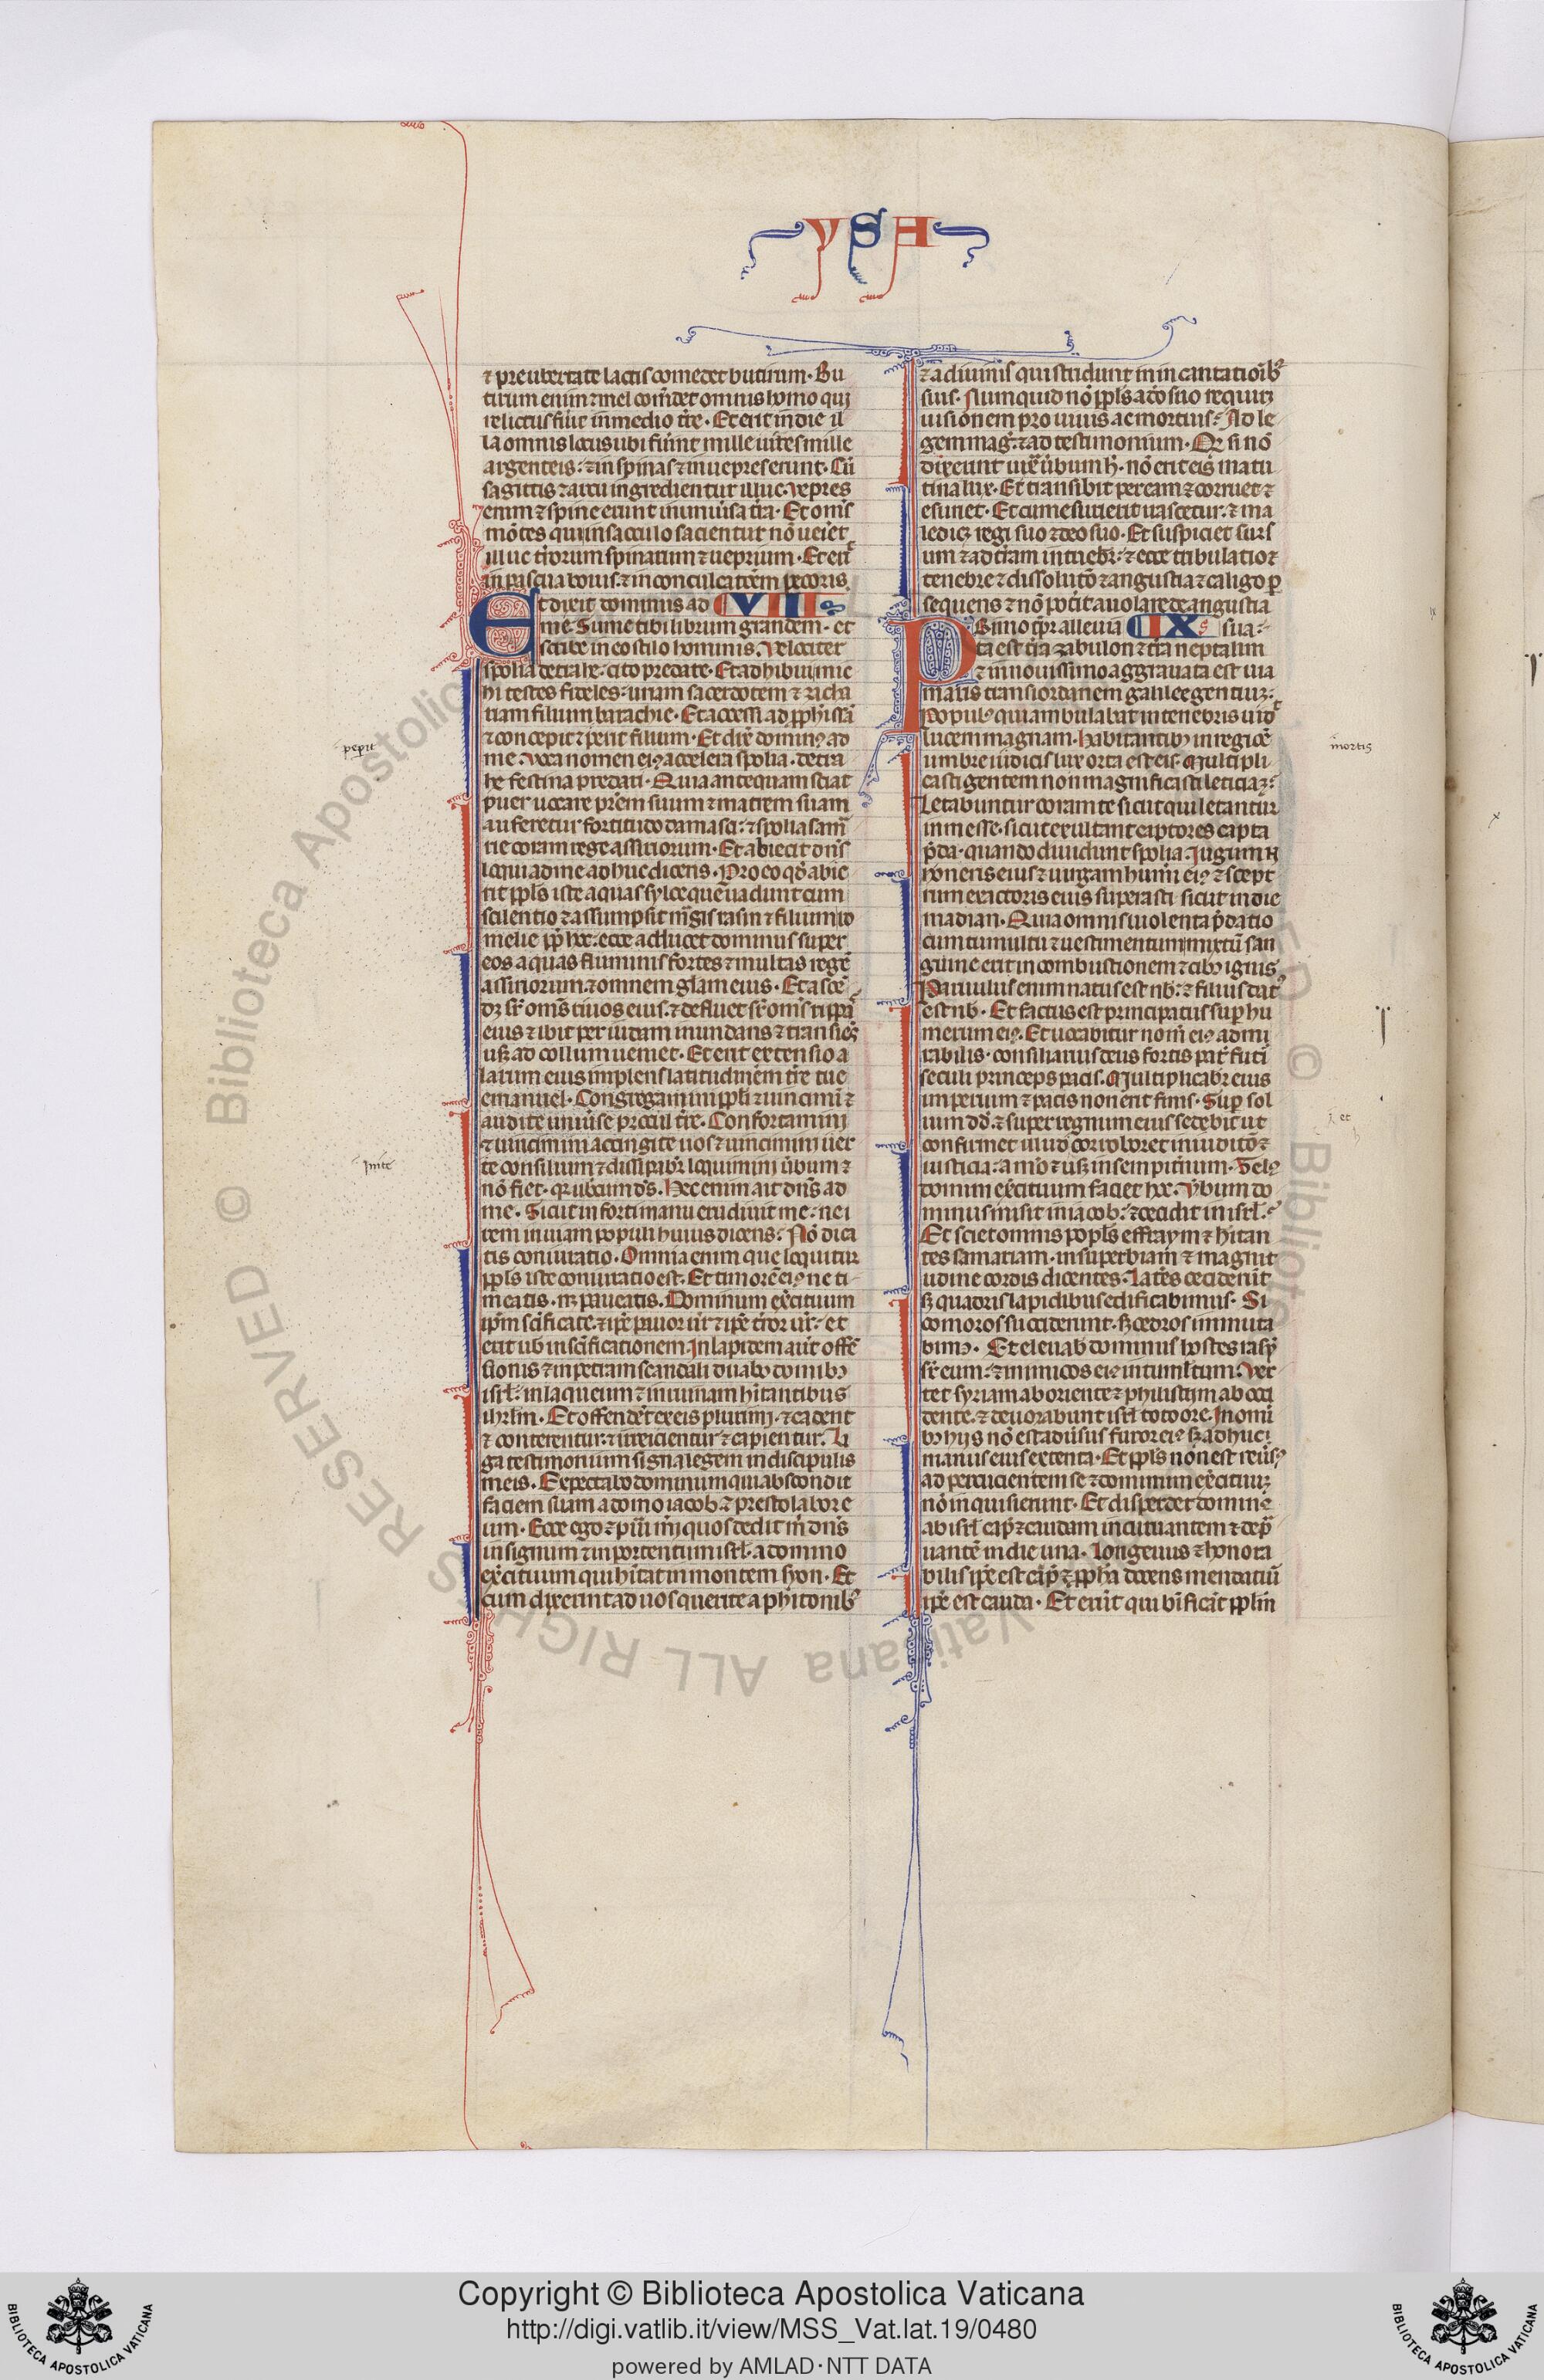 YSA
⁊ pre ubertate lactis comedet butirum. Bu
tirum enim ⁊ mel com̃det omnis homo qui
relictus fũit in medio tr̃e. Et erit in die il
la omnis locus ubi fũint mille uites mille
argenteis: ⁊ in spinas ⁊ in uepres erunt. Cũ
sagittis ⁊ arcu ingredientur illuc. Vepres
enim ⁊ spine erunt in uniũsa tr̃a. Et om̃s
mõtes qui in sacculo sacientur nõ ueiet
illuc tr̃orum spinarum ⁊ ueprium. Et erit̃
in pascua bouis. ⁊ in conculcatõem pecoris.
Et dixit dominus ad VIII
me. Sume tibi librum grandem. et
scribe in eo stilo hominis. Velociter
spolia detrahe. cito predare. Et adhibui mic
hi testes fideles: uriam sacerdotem ⁊ zacha
riam filium barachie. Et accessi ad ꝓphissã
⁊ concepit ⁊ perit filium. Et dix̃ dominꝰ ad
me. Voca nomen eiꝰ accelera spolia. detra
he festina predari. Quia antequam sciat
puer uocare pr̃em suum ⁊ matrem suam
auferetur fortitudo damasci: ⁊ spolia sam̃
rie coram rege assiriorum. Et abiecit dñs
loqui ad me adhuc dicens. Pro eo qđ abie
cit ppl̃s iste aquas syloe que uadunt cum
scilentio ⁊ assumpsit m̃gis rasin ⁊ filium ro
melie. ꝓp̃ hoc: ecce adducet dominus super
eos aquas fluminis fortes ⁊ multas regẽ
assiriorum ⁊ omnem gl̃am eius. Et ascẽ
dꝫ sr̃ om̃s riuos eius. ⁊ defluet sr̃ om̃s rippã
eius ⁊ ibit per iudam inundans ⁊ transiẽs
usꝫ ad collum ueniet. Et erit extensio a
larum eius implens latitudinem tr̃e tue
emanuel. Congregamini ppl̃i ⁊ uincimĩ ⁊
audite uniũse procul tr̃e. Confortamini
⁊ uincimini accingite uos ⁊ uincimini uer
te consilium ⁊ dissipabr̃. loquimini ũbum ⁊
nõ fiet. qr ubcum đs. Hec enim ait dñs ad
me. Sicut in forti manu erudiuit me: ne i
rem in uiam populi huius dicens: Nõ dica
tis coniuratio. Omnia enim que loquitur
ppl̃s iste coniuratio est. Et timorẽ eiꝰ ne ti
meatis. nꝫ paueatis. Dominum ex̃cituum
ip̃m sc̃ificate. ⁊ ip̃e pauor ur̃ ⁊ ip̃e tr̃or ur̃. et
erit ub in sc̃ificationem. In lapidem aut offẽ
sionis ⁊ in petram scandali duabꝰ domibꝰ
isrl̃. in laqueum ⁊ in ruinam hĩtantibus
ihrlm̃. Et offendẽt ex eis plurimi. ⁊ cadent
⁊ conterentur. ⁊ irreicientur ⁊ capientur. Li
ga testimonium signa legem in discipulis
meis. Expectabo dominum qui abscondit
faciem suam a domo iacob ⁊ prestolabor e
um. Ecce ego ⁊ pũi mĩ quos dedit m̃ dñs
in signum ⁊ in portentum isrl̃. a domino
ex̃cituum qui hĩtat in montem syon. Et
cum dixerint ad uos querite a phitonibꝰ
⁊ a diuinis qui stridunt in incantatiõibꝰ
suis. Numquid nõ ppl̃s a đo suo requirꝫ
uisionem pro uiuis ac mortuis? Ad le
gem mag̃. ⁊ ad testimonium. Qr si nõ
dixerint iux̃ ũbum h̃. nõ erit eis matu
tina lux. Et transibit per eam ⁊ corruet ⁊
esuriet. Et cum esurierit irascetur. ⁊ ma
ledicꝫ regi suo ⁊ deo suo. Et suspiciet surs
um ⁊ ad tr̃am intuebr̃: ⁊ ecce tribulatio ⁊
tenebre ⁊ dissolutõ ⁊ angustia ⁊ caligo ꝑ
sequens ⁊ nõ poterit auolare de angustia
sua:
Primo tp̃r alleuia IX
ta est tr̃a zabulon ⁊ tr̃a neptalim
⁊ in nouissimo aggrauata est uia
maris transiordanem galilee gentiuꝫ:
Populꝰ qui ambulabat in tenebris uid̃
lucem magnam. Habitantibꝰ in regiõe
umbre iudicis lux orta est eis. Multipli
casti gentem non magnificasti leticiaꝫ:
Letabuntur coram te sicut qui letantur
in messe. sicut exultant captores capta
p̃da. quando diuidunt spolia. Jugum n̄
honeris eius ⁊ uirgam hum̃i eiꝰ ⁊ scept
rum exactoris eius superasti sicut in die
madian. Quia omnis uiolenta p̃datio
cum tumultu ⁊ uestimentum mixtũ san
guine erit in combustionem ⁊ cibꝰ ignis
Paruulus enim natus est nb: ⁊ filius datꝰ
est nb. Et factus est principatus suꝑ hu
merum eiꝰ. Et uocabitur nom̃ eiꝰ admi
rabilis. consiliarius deus fortis pat̃ futĩ
seculi princeps pacis. Multiplicabr̃ eius
imperium ⁊ pacis non erit finis. Suꝑ sol
ium dđ. ⁊ super regnum eius sedebit ut
confirmet illud corroboret in iuditõ ⁊
iusticia: amõ ⁊ usꝫ in sempit̃num. Zelꝰ
domini ex̃cituum faciet hoc. Ṽbum do
minus misit in iacob: ⁊ cecidit in isrl̃.
Et sciet omnis popl̃s effraym ⁊ hĩtan
tes samariam. in superbiam ⁊ magnit
udine cordis dicentes. Lateres ceciderũt
sꝫ quadris lapidibus edificabimus. Si
comoros succiderunt. sꝫ cedros immuta
bimꝰ. Et eleuab dominus hostes rasỹ
sr̃ eum: ⁊ inimicos eiꝰ in tuml̃tum. Ver
tet syriam ab oriente ⁊ philistim ab occi
dente. ⁊ deuorabunt isrl̃ toto ore. In omĩ
bꝰ hijs nõ est aũsus furor eiꝰ sꝫ adhuc
manus eius extenta. Et ppl̃s nõn est reũsꝰ
ad percucientem se ⁊ dominum ex̃cituuꝫ
nõ inquisierunt. Et disperdet dominꝰ
ab isrl̃ cap̃ ⁊ caudam incuruantem ⁊ dep̃
uantẽ in die una. Longeuus ⁊ honora
bilis ip̃e est cap̃ ⁊ ꝓph̃a docens mendatiũ
ip̃e est cauda. Et erũt qui bĩficãt ppl̃m
peperit
mortis
Inite
Copyright © Biblioteca Apostolica Vaticana
http://digi.vatlib.it/view/MSS_Vat.lat.19/0480
powered by AMLAD·NTT DATA
BIBLIOTECA APOSTOLICA VATICANA
BIBLIOTECA APOSTOLICA VATICANA
© Biblioteca Apostolica Vaticana ALL RIGHTS RESERVED